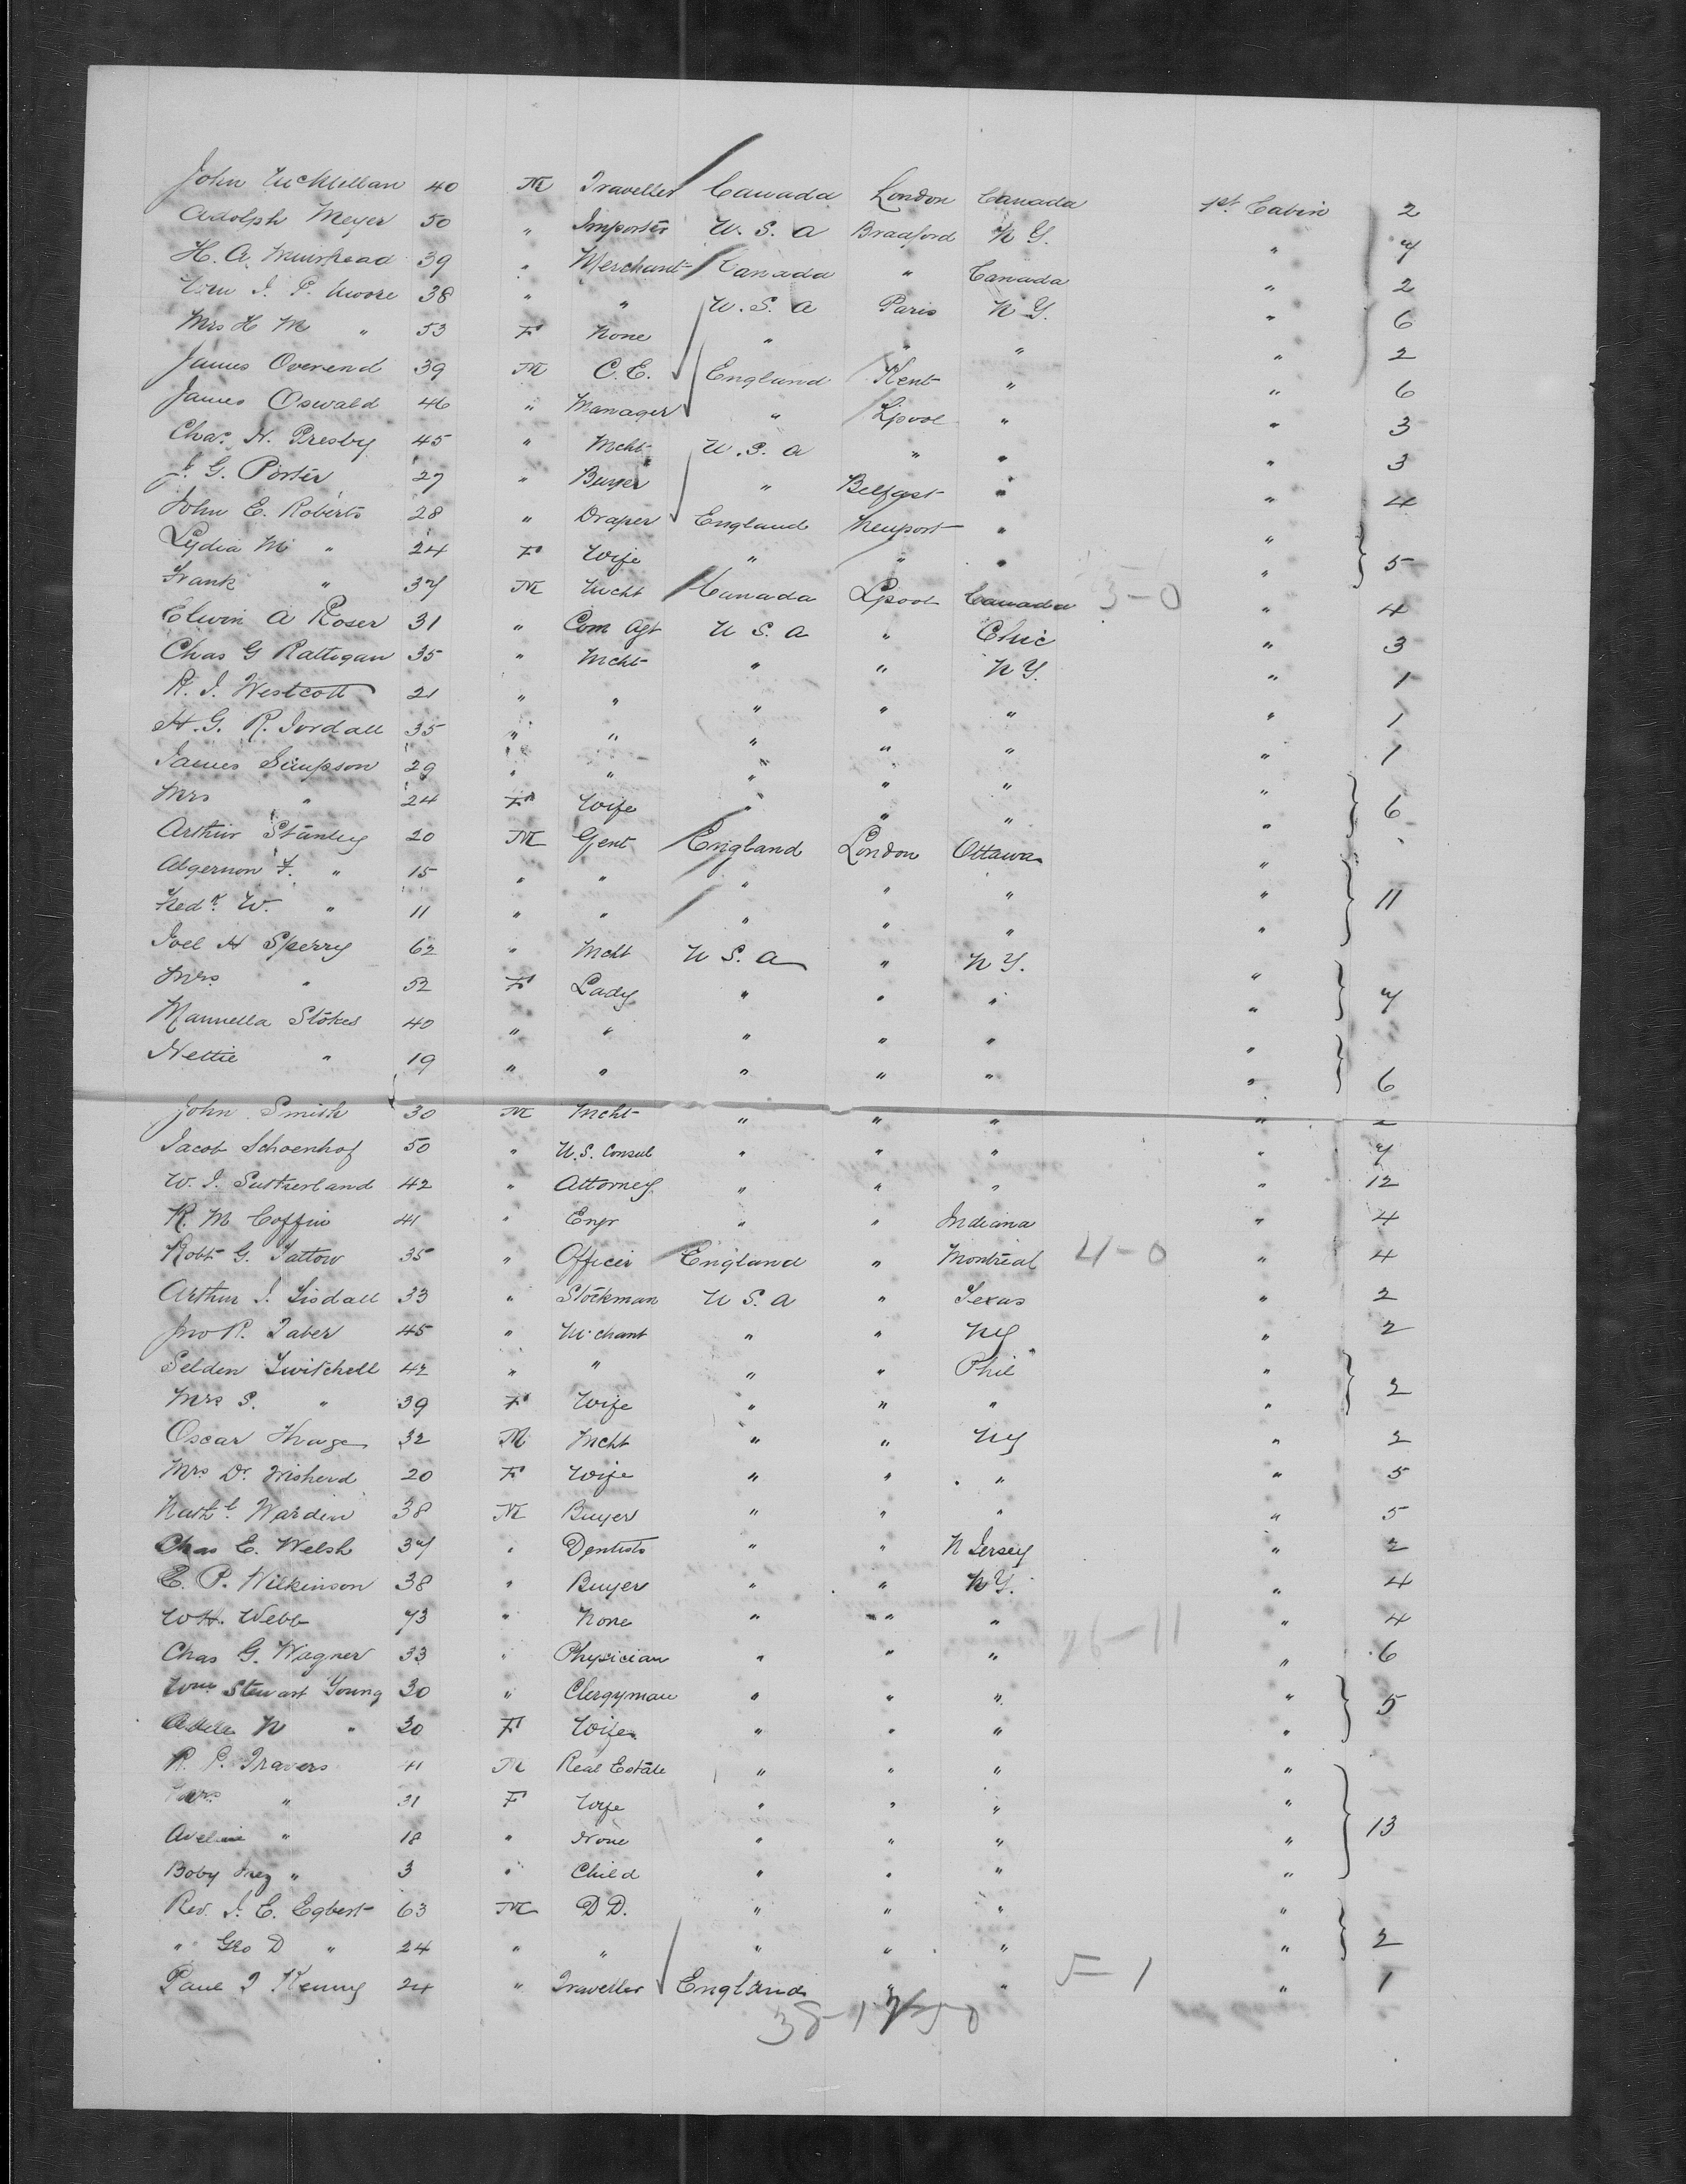 John McMellan 40 M Traveller Canada London Canada 1st Cabin 2
Adolph Meyer 50 " Importer U. S. A Bradford N Y. " 7
H. A. Muirhead 39 " Merchant Canada " Canada " 2
Wm J. P. Moore 38 " " U. S. A Paris N Y. " 6
Mrs H M " 53 F None " " " " 2
James Overend 39 M C. E. England Kent " " 6
James Oswald 46 " Manager " Lpool " " 3
Chas. H. Presby 45 " Mcht U. S. A " " " 3
J. G. Porter 27 " Buyer " Belfast " " 4
John E. Roberts 28 " Draper England Newport " "
Lydia M " 24 F Wife " " " " 5
Frank " 37 M Mcht Canada Lpool Canada 3-0 " 4
Elwin A Roser 31 " Com Agt U S. A " Chic " 3
Chas G Rattigan 35 " Mcht " " N Y. " 1
R. J. Westcott 21 " " " " " " 1
H. G. R. Jordall 35 " " " " " " 1
James Simpson 29 " " " " " "
Mrs " 24 F Wife " " " " 6
Arthur Stanley 20 M Gent England London Ottawa "
Algernon F. " 15 " " " " " " 11
Fredk. W. " 11 " " " " " "
Joel H Sperry 62 " Mcht U S. A " N Y. "
Mrs " 52 F Lady " " " " 7
Mannella Stokes 40 " " " " " "
Nettie " 19 " " " " " " 6
John Smith 30 M Mcht " " " " 2
Jacob Schoenhof 50 " U. S. Consul " " " " 7
W. J. Sutherland 42 " Attorney " " " " 12
R. M Coffin 41 " Engr " " Indiana " 4
Robt G. Tattow 35 " Officer England " Montreal 4-0 " 4
Arthur J. Tisdall 33 " Stockman U S. A " Texas " 2
Jno R. Taber 45 " Mchant " " N Y " 2
Selden Twitchell 42 " " " " Phil "
Mrs S. " 39 F Wife " " " " 2
Oscar 32 M Mcht " " N Y " 2
Mrs Dr. Wisherd 20 F Wife " " " " 5
Nathl Warden 38 M Buyer " " " " 5
Chas E. Welsh 37 " Dentist " " N Jersey " 2
E. P. Wilkinson 38 " Buyer " " N Y. " 4
W H. Webb 73 " None " " " " 4
Chas G. Wagner 33 " Physician " " " 26-11 " 6
Wm Stewart Young 30 " Clergyman " " " " 5
Adele N " 30 F Wife " " " "
R. P. Travers 41 M Real Estate " " " "
Mrs " 31 F Wife " " " "
Aveline " 18 " None " " " " 13
Boby Inez " 3 " Child " " " "
Rev. J. E. Egbert 63 M D D. " " " "
" Geo D " 24 " " " " " " 2
Paul J Kenny 24 " Traveller England " " 5-1 " 1